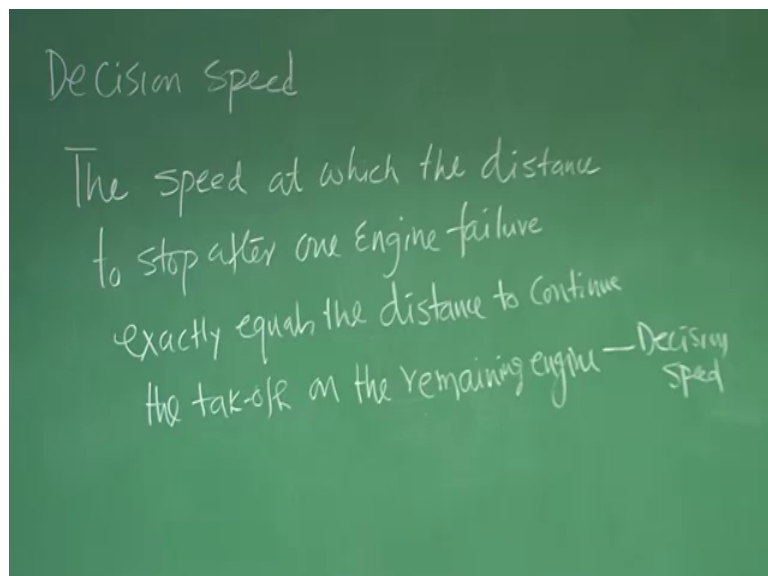 Decision speed
The speed at which the distance
to stop after one Engine failure
exactly equals the distance to Continue
the tak-off on the remaining engine — Decision
speed